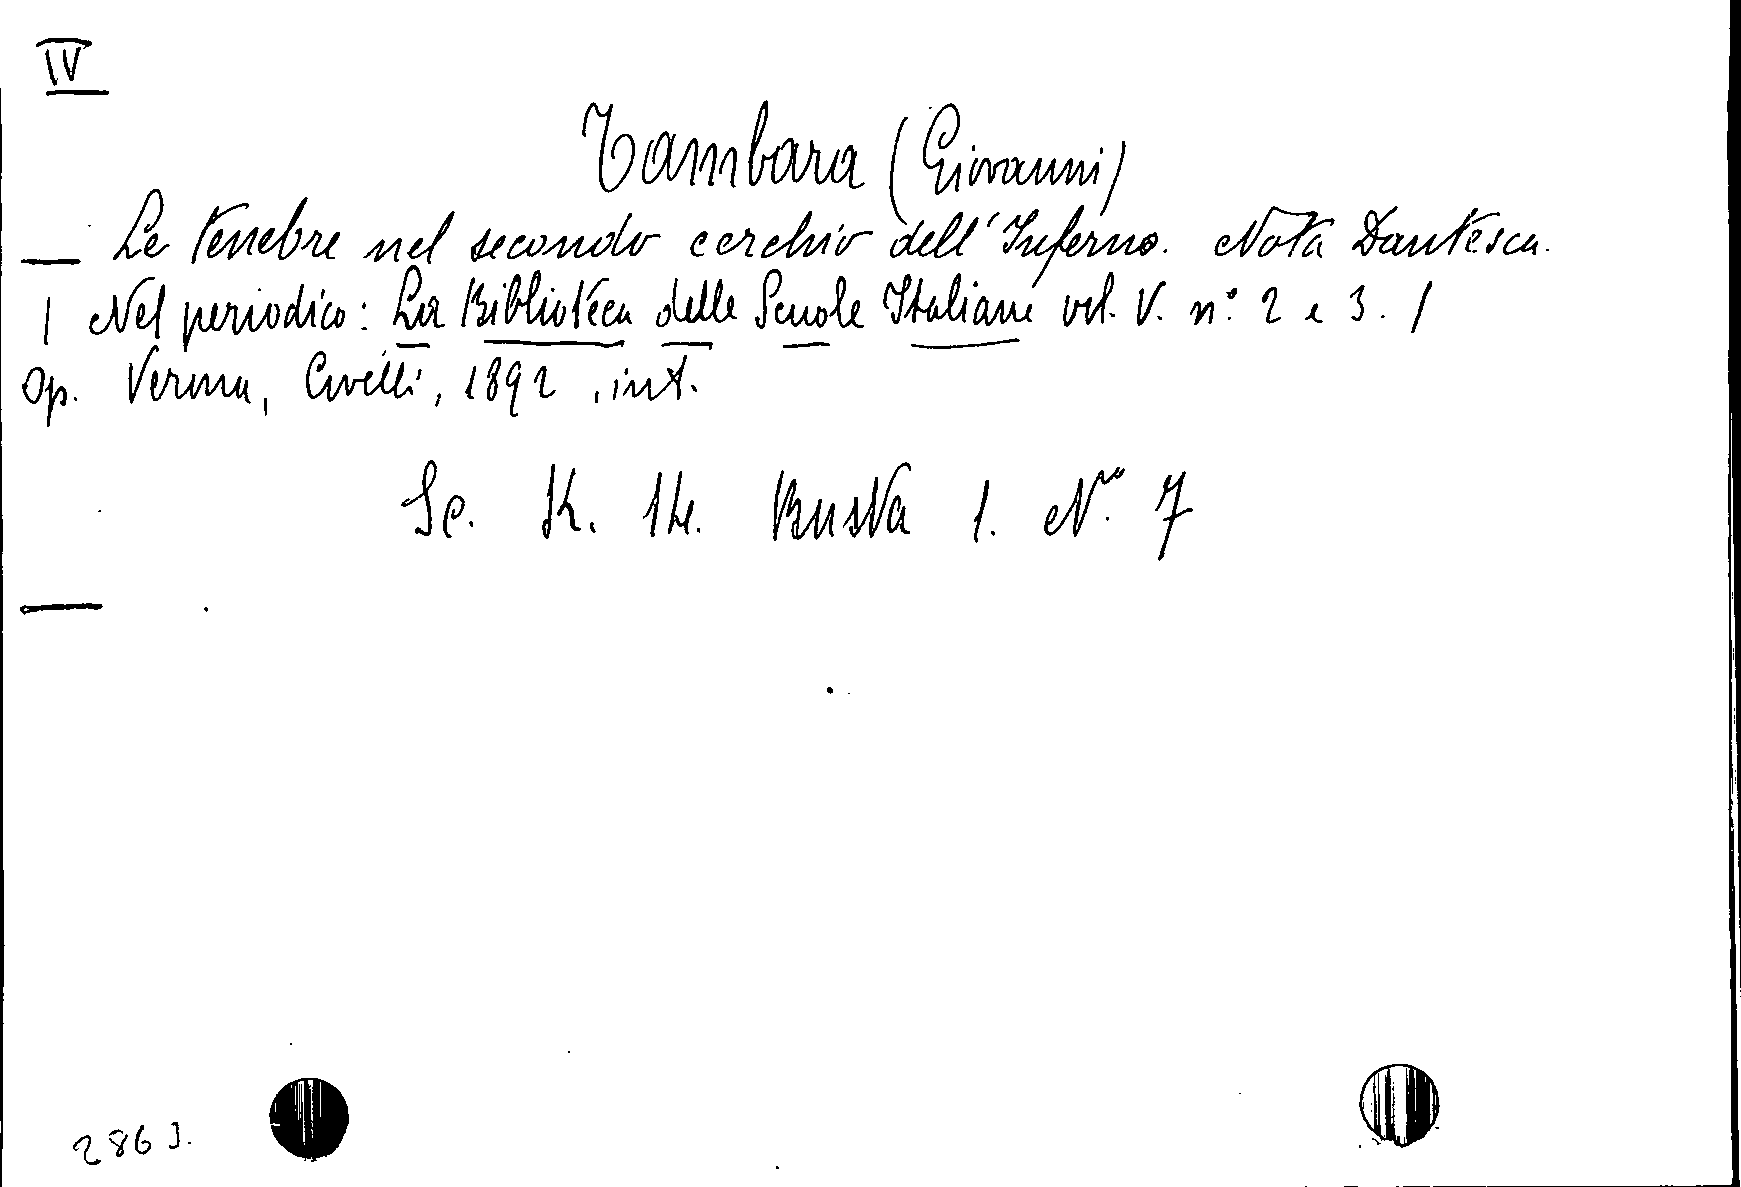 IV
Tambara (Giovanni)
— Le tenebre nel secondo cerchio dell'Inferno. Nota Dantesca.
| Nel periodico: La Biblioteca delle Scuole Italiane vol. V. n.° 2 e 3. |
Op. Verona, Civelli, 1892, int.
Sc. K. 14. Busta 1. N° 7
—
286 J.